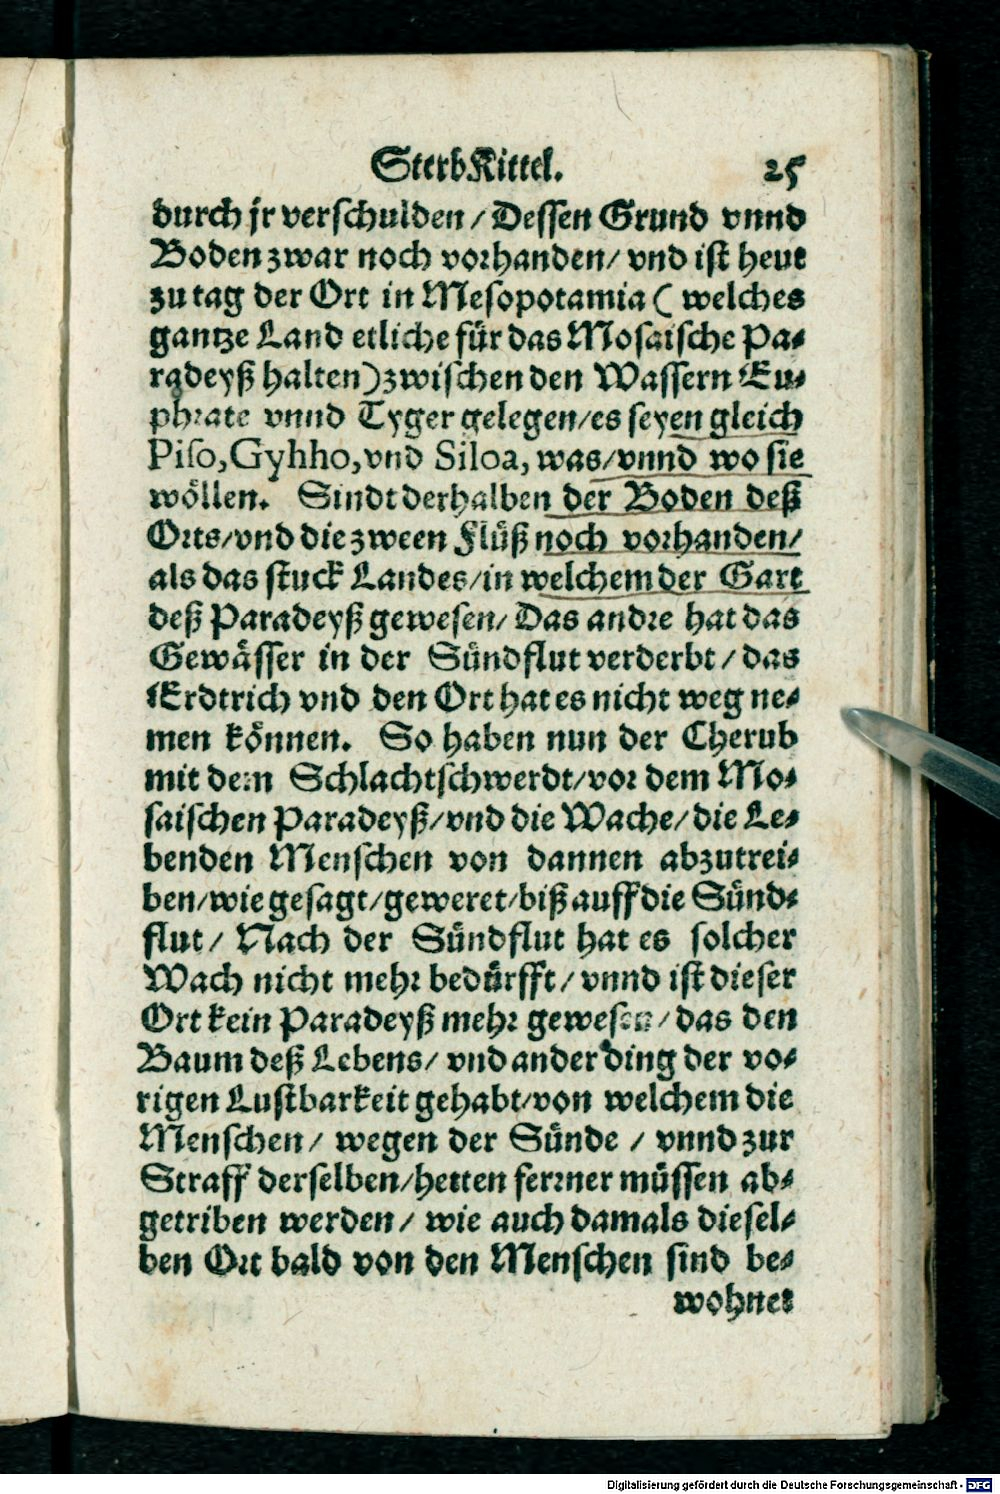 SterbKittel. 25
durch jr verschulden / Dessen Grund vnnd
Boden zwar noch vorhanden / vnd ist heut
zu tag der Ort in Mesopotamia ( welches
gantze Land etliche für das Mosaische Pa-
radeyß halten) zwischen den Wassern Eu-
phrate vnnd Tyger gelegen / es seyen gleich
Piso, Gyhho, vnd Siloa, was / vnnd wo sie
wöllen. Sindt derhalben der Boden deß
Orts / vnd die zween Flüß noch vorhanden /
als das stuck Landes / in welchem der Gart
deß Paradeyß gewesen / Das andre hat das
Gewässer in der Sündflut verderbt / das
Erdtrich vnd den Ort hat es nicht weg ne-
men können. So haben nun der Cherub
mit dem Schlachtschwerdt / vor dem Mo-
saischen Paradeyß / vnd die Wache / die Le-
benden Menschen von dannen abzutrei-
ben / wie gesagt / geweret / biß auff die Sünd-
flut / Nach der Sündflut hat es solcher
Wach nicht mehr bedürfft / vnnd ist dieser
Ort kein Paradeyß mehr gewesen / das den
Baum deß Lebens / vnd ander ding der vo-
rigen Lustbarkeit gehabt / von welchem die
Menschen / wegen der Sünde / vnnd zur
Straff derselben / hetten ferrner müssen ab-
getriben werden / wie auch damals diesel-
ben Ort bald von den Menschen sind be-
wohnet
Digitalisierung gefördert durch die Deutsche Forschungsgemeinschaft - DFG